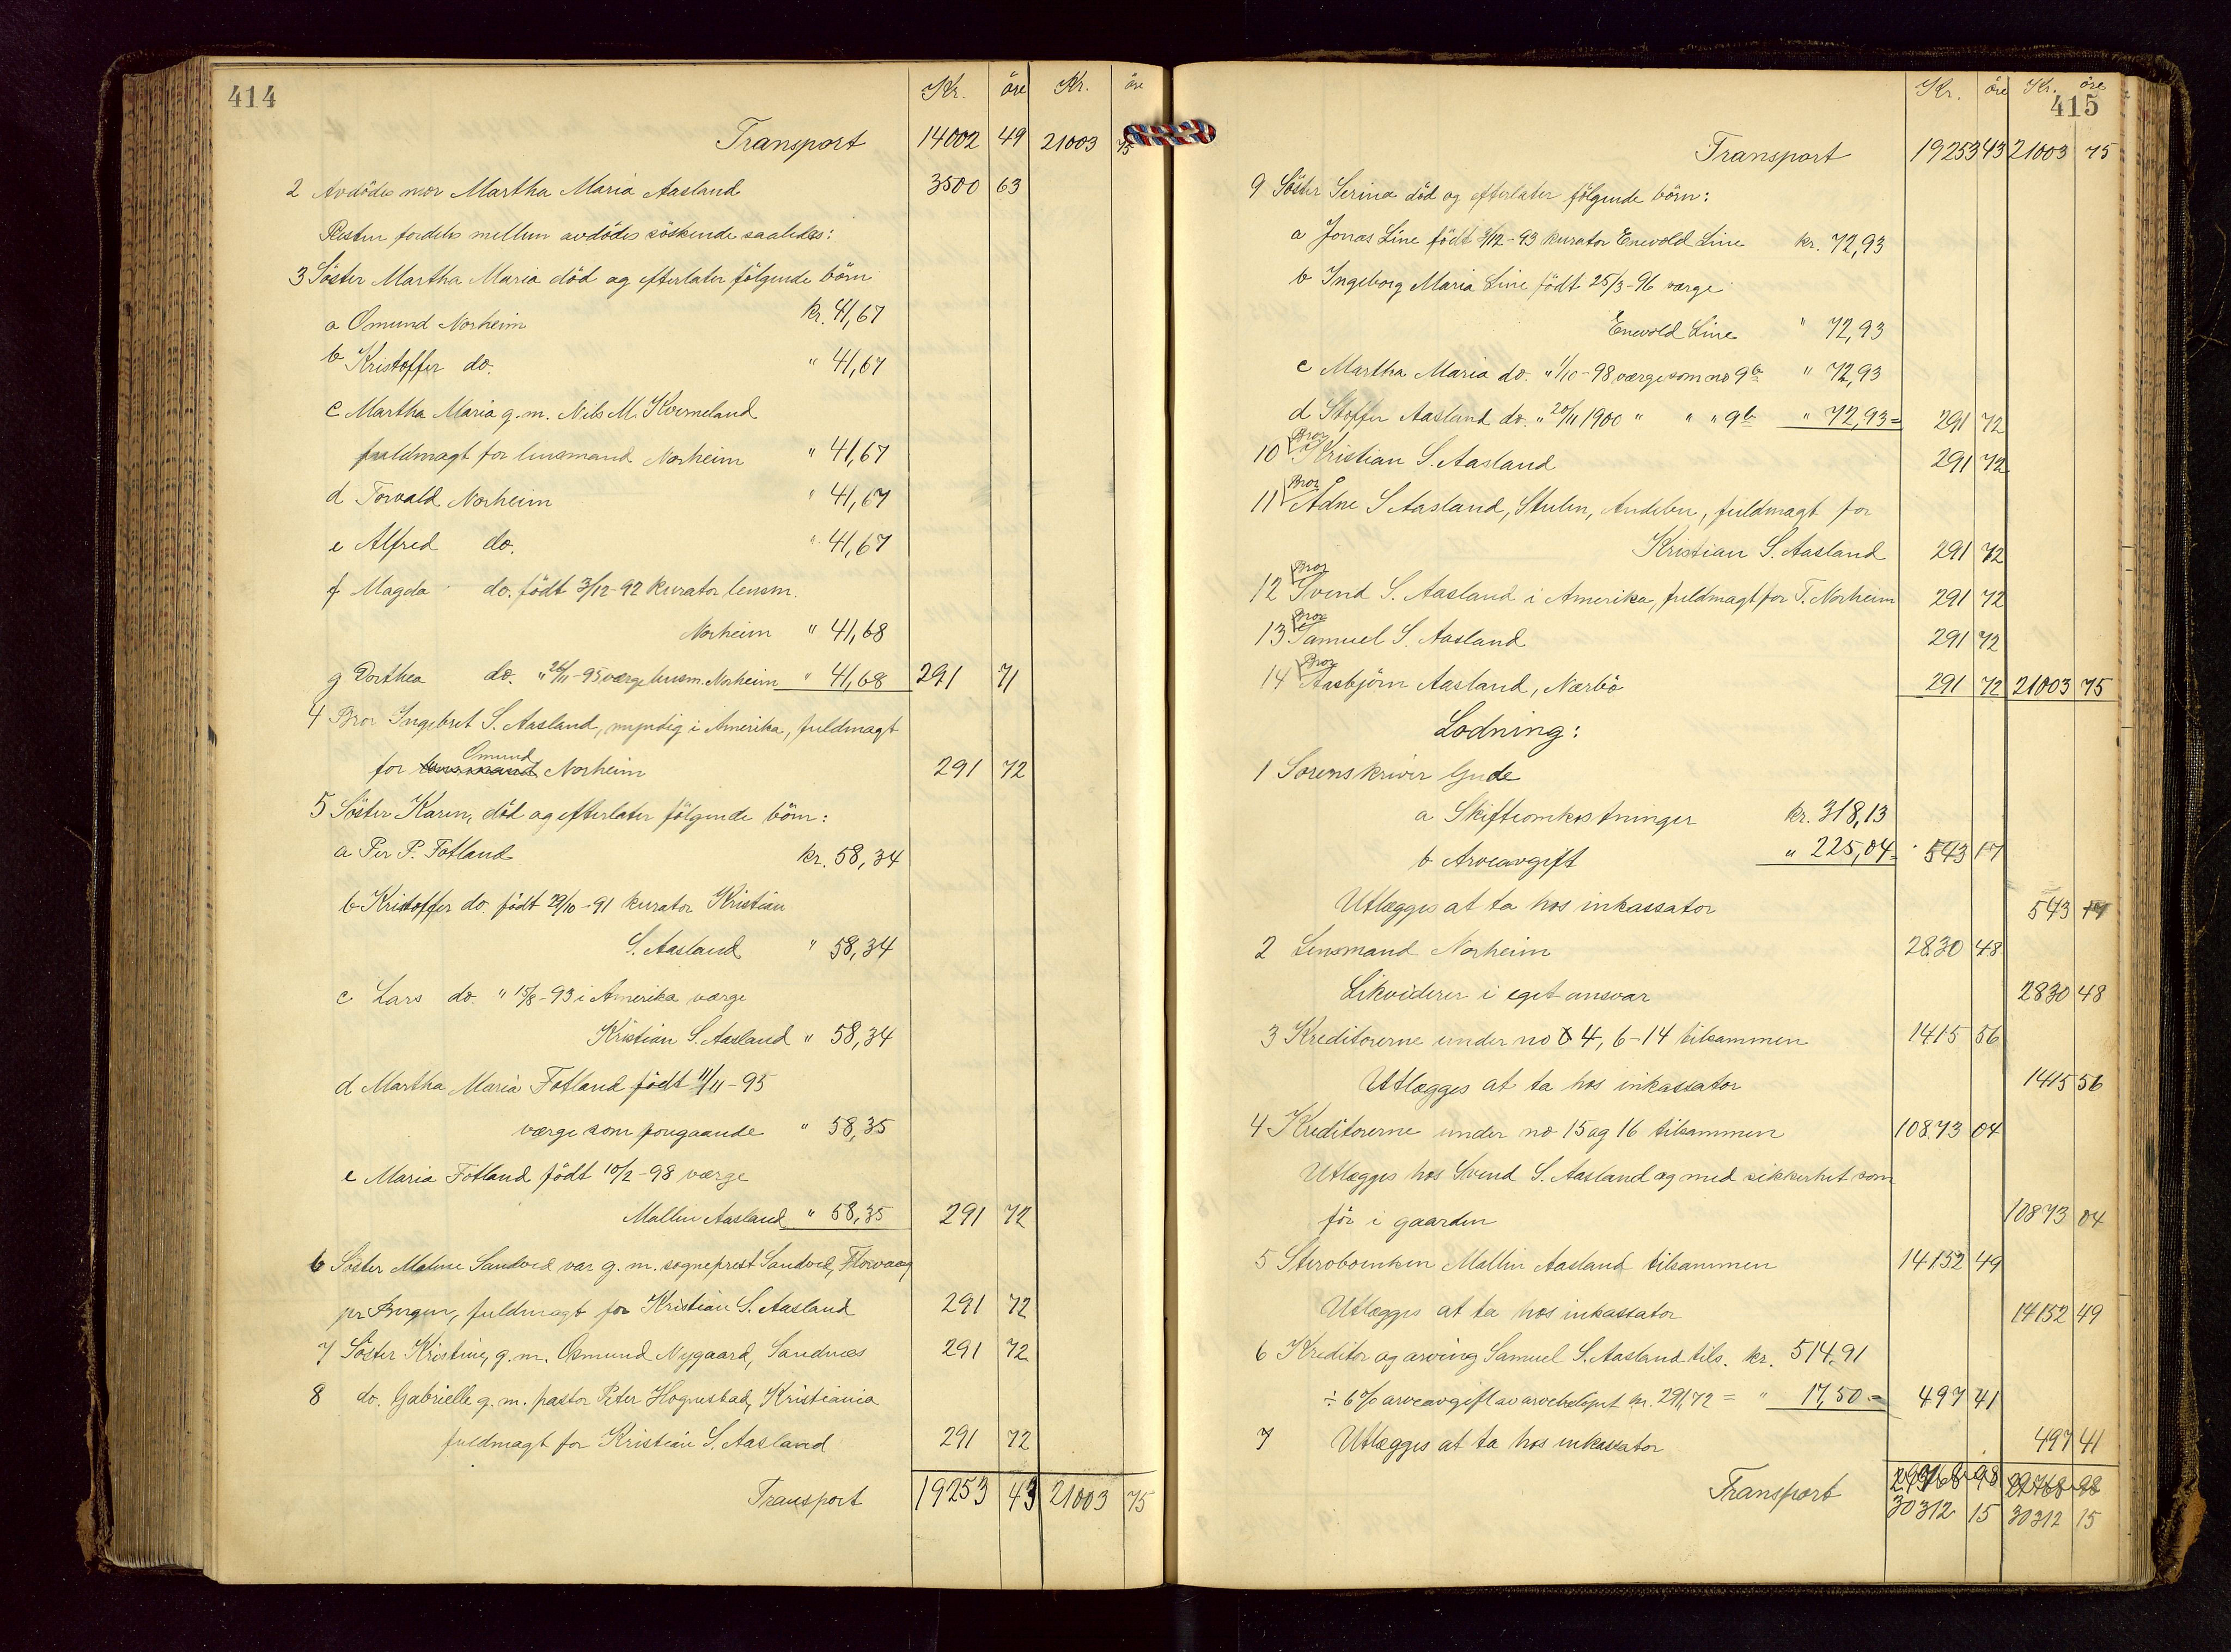 414
Kr. öre Kr. öre
Transport 14002 49 21003 75
2 Avdödes mor Martha Maria Aasland 3500 63
Resten fordeles mellem avdödes söskende saaledes:
3 Söster Martha Maria död og efterlater fölgende börn
a Omund Norheim kr. 41,67
b Kristoffer do. " 41,67
c Martha Maria g.m. Nils M. Kverneland
fuldmagt for lensmand Norheim " 41,67
d Torvald Norheim " 41,67
e Alfred do. " 41,67
f Magda do. födt 3/12-92 kurator lensm.
Norheim " 41,68
g Dorthea do. " 26/11-95 værge lensm. Norheim " 41,68 291 71
4 Bror Ingebret S. Aasland, myndig i Amerika, fuldmagt
for lensmand Omund Norheim 291 72
5 Söster Karen, död og efterlater fölgende börn:
a Per P. Fotland kr. 58,34
b Kristoffer do. födt 29/10-91 kurator Kristian
S. Aasland " 58,34
c Lars do. " 15/8-93 i Amerika værge
Kristian S. Aasland " 58,34
d Martha Maria Fotland födt 11/11-95
værge som foregaaende " 58,35
e Maria Fotland födt 10/2-98 værge
Mallin Aasland " 58,35 291 72
6 Söster Malene Sandved var g.m. sogneprest Sandved, Florvaag
pr Bergen, fuldmagt for Kristian S. Aasland 291 72
7 Söster Kristine, g.m. Osmund Nygaard, Sandnes 291 72
8 do. Gabrielle g.m. pastor Peter Hognestad, Kristiania
fuldmagt for Kristian S. Aasland 291 72
Transport 19253 43 21003 75
415
Kr. öre Kr. öre
Transport 19253 43 21003 75
9 Söster Serina död og efterlater fölgende börn:
a Jonas Line födt 3/12-93 kurator Enevold Line kr. 72,93
b Ingeborg Maria Line födt 25/3-96 værge
Enevold Line " 72,93
c Martha Maria do. " 1/10-98 værge som no 9b " 72,93
d Stoffer Aasland do. " 20/11 1900 " " " 9b " 72,93 = 291 72
10 Bror Kristian S. Aasland 291 72
11 Bror Ådne S Aasland, Stulen, Andebu, fuldmagt for
Kristian S. Aasland 291 72
12 Bror Svend S. Aasland i Amerika, fuldmagt for T. Norheim 291 72
13 Bror Samuel S. Aasland 291 72
14 Bror Aasbjörn Aasland, Nærbö 291 72 21003 75
Lodning:
1 Sorenskriver Gude
a Skifteomkostninger kr. 318,13
b Arveavgift " 225,04 = 543 17
Utlægges at ta hos inkassator 543 17
2 Lensmand Norheim 2830 48
Likviderer i eget ansvar 2830 48
3 Kreditorerne under no 4, 6-14 tilsammen 1415 56
Utlægges at ta hos inkassator 1415 56
4 Kreditorerne under no 15 og 16 tilsammen 10873 04
Utlægges hos Svend S. Aasland og med sikkerhet som
för i gaarden 10873 04
5 Sterboenken Mallin Aasland tilsammen 14152 49
Utlægges at ta hos inkassator 14152 49
6 Kreditor og arving Samuel S. Aasland tils. kr. 514,91
÷ 6% arveavgift av arvebelöpet kr. 291,72 = " 17,50 = 497 41
7 Utlægges at ta hos inkassator 497 41
Transport 29768 98 29768 98
30312 15 30312 15